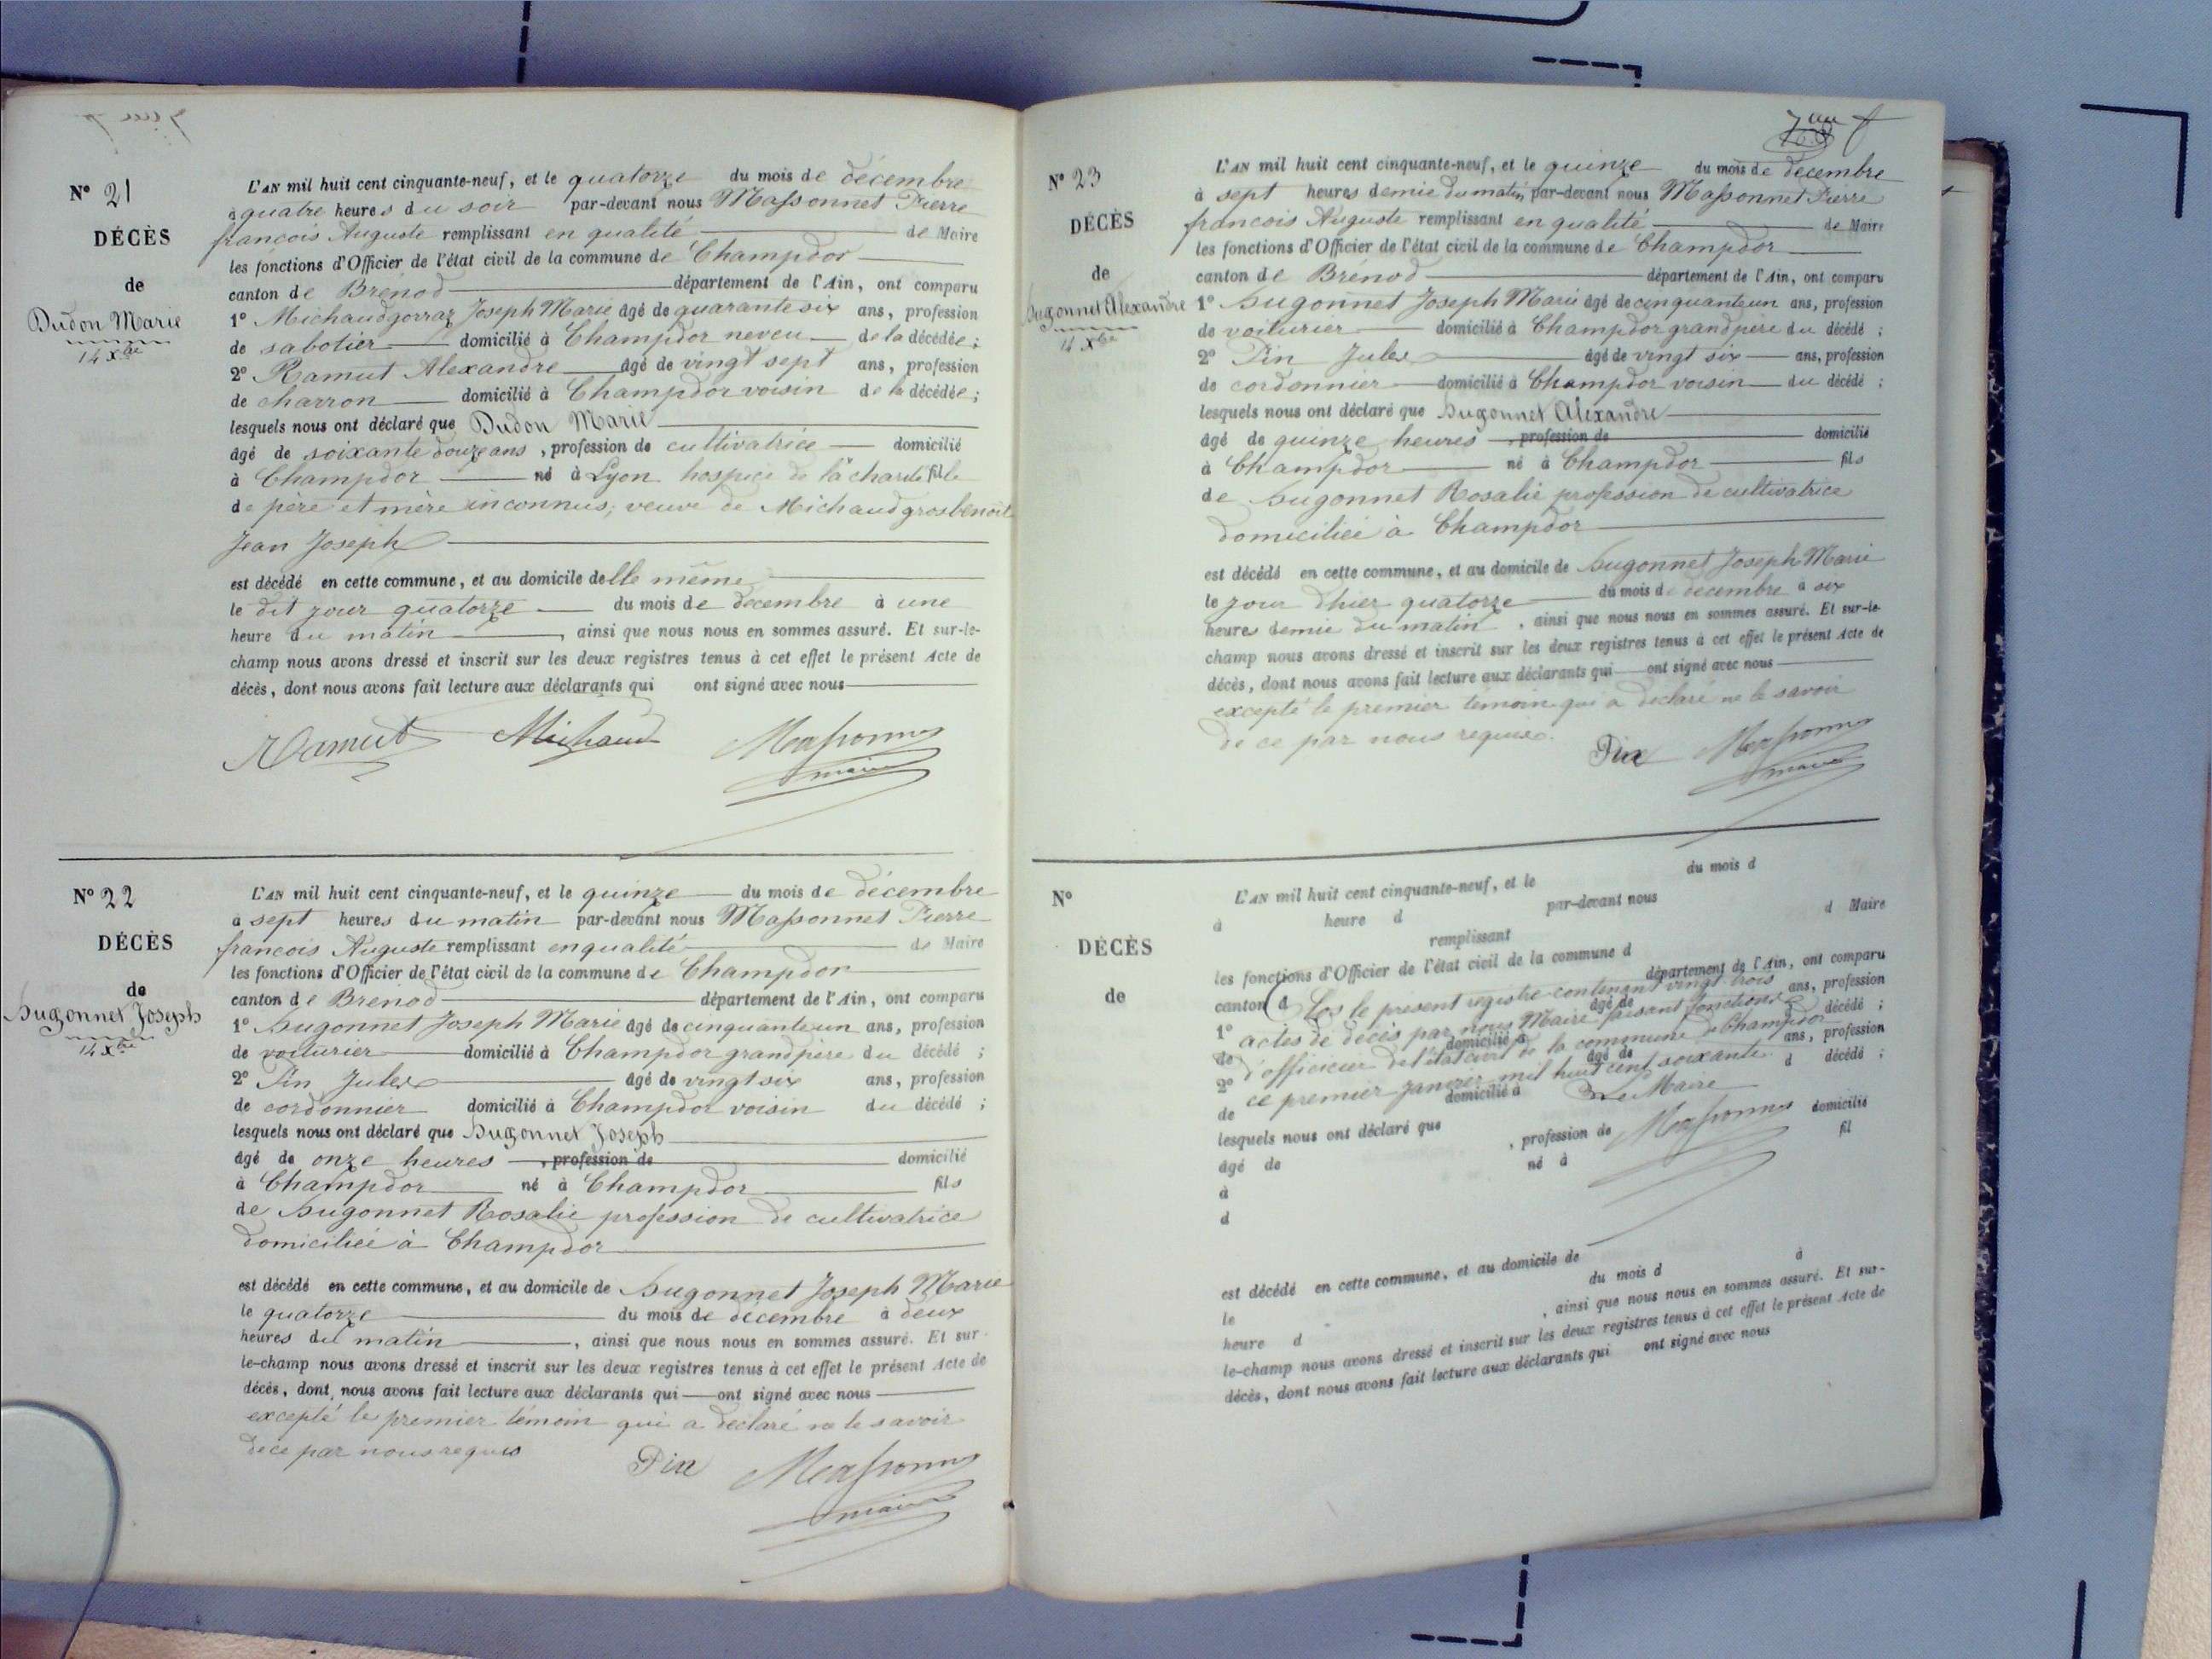 N° 21
DÉCÈS
de
Dudon Marie
14 Xbre
L'AN mil huit cent cinquante-neuf, et le quatorze du mois de décembre
à quatre heures du soir par-devant nous Massonnet Pierre
françois Auguste remplissant en qualité de Maire
les fonctions d'Officier de l'état civil de la commune de Champdor
canton de Brénod département de l'Ain, ont comparu
1° Michaudgorraz Joseph Marie âgé de quarante six ans, profession
de sabotier domicilié à Champdor neveu de la décédée;
2° Ramut Alexandre âgé de vingt sept ans, profession
de charron domicilié à Champdor voisin de la décédée;
lesquels nous ont déclaré que Dudon Marie
âgé de soixante douze ans, profession de cultivatrice domicilié
à Champdor né à Lyon hospice de la charité fille
de père et mère inconnus, veuve de Michaudgrosbenoit
Jean Joseph
est décédé en cette commune, et au domicile delle même
le dit jour quatorze du mois de decembre à une
heure du matin, ainsi que nous nous en sommes assuré. Et sur-le-
champ nous avons dressé et inscrit sur les deux registres tenus à cet effet le présent Acte de
décès, dont nous avons fait lecture aux déclarants qui ont signé avec nous
Ramut Michaud Massonnet
maire
N° 22
DÉCÈS
de
Sugonnet Joseph
14 Xbre
L'AN mil huit cent cinquante-neuf, et le quinze du mois de décembre
à sept heures du matin par-devant nous Massonnet Pierre
françois Auguste remplissant en qualité de Maire
les fonctions d'Officier de l'état civil de la commune de Champdor
canton de Brénod département de l'Ain, ont comparu
1° Sugonnet Joseph Marie âgé de cinquante un ans, profession
de voiturier domicilié à Champdor grand père du décédé;
2° Pin Jules âgé de vingt six ans, profession
de cordonnier domicilié à Champdor voisin du décédé;
lesquels nous ont déclaré que Sugonnet Joseph
âgé de onze heures, profession de domicilié
à Champdor né à Champdor fils
de Sugonnet Rosalie profession de cultivatrice
domiciliée à Champdor
est décédé en cette commune, et au domicile de Sugonnet Joseph Marie
le quatorze du mois de décembre à deux
heures du matin, ainsi que nous nous en sommes assuré. Et sur-
le-champ nous avons dressé et inscrit sur les deux registres tenus à cet effet le présent Acte de
décès, dont nous avons fait lecture aux déclarants qui ont signé avec nous
excepté le premier témoin qui a déclaré ne le savoir
de ce par nous requis
Pin Massonnet
maire
N° 23
DÉCÈS
de
Sugonnet Alexandre
14 Xbre
L'AN mil huit cent cinquante-neuf, et le quinze du mois de decembre
à sept heures demie du matin par-devant nous Massonnet Pierre
francois Auguste remplissant en qualité de Maire
les fonctions d'Officier de l'état civil de la commune de Champdor
canton de Brénod département de l'Ain, ont comparu
1° Sugonnet Joseph Marie âgé de cinquante un ans, profession
de voiturier domicilié à Champdor grand père du décédé;
2° Pin Jules âgé de vingt six ans, profession
de cordonnier domicilié à Champdor voisin du décédé;
lesquels nous ont déclaré que Sugonnet Alexandre
âgé de quinze heures, profession de domicilié
à Champdor né à Champdor fils
de Sugonnet Rosalie profession de cultivatrice
domiciliée à Champdor
est décédé en cette commune, et au domicile de Sugonnet Joseph Marie
le jour dhier quatorze du mois de decembre à six
heures demie du matin, ainsi que nous nous en sommes assuré. Et sur-le-
champ nous avons dressé et inscrit sur les deux registres tenus à cet effet le présent Acte de
décès, dont nous avons fait lecture aux déclarants qui ont signé avec nous
excepté le premier témoin qui a declaré ne le savoir
de ce par nous requis.
Pin Massonnet
maire
N°
DÉCÈS
de
L'AN mil huit cent cinquante-neuf, et le du mois d
à heure d par-devant nous
remplissant d Maire
les fonctions d'Officier de l'état civil de la commune d
canton d département de l'Ain, ont comparu
Clos le présent registre contenant vingt trois
1° âgé de ans, profession
actes de décès par nous Maire faisant fonctions
de domicilié à d décédé;
d'officicier de l'état civil de la commune de Champdor
2° âgé de ans, profession
ce premier janvier mil huit cent soixante.
de domicilié à d décédé;
Le Maire
lesquels nous ont déclaré que
Massonnet
âgé de, profession de domicilié
à né à fil
d
est décédé en cette commune, et au domicile de
le du mois d à
heure d, ainsi que nous nous en sommes assuré. Et sur-
le-champ nous avons dressé et inscrit sur les deux registres tenus à cet effet le présent Acte de
décès, dont nous avons fait lecture aux déclarants qui ont signé avec nous